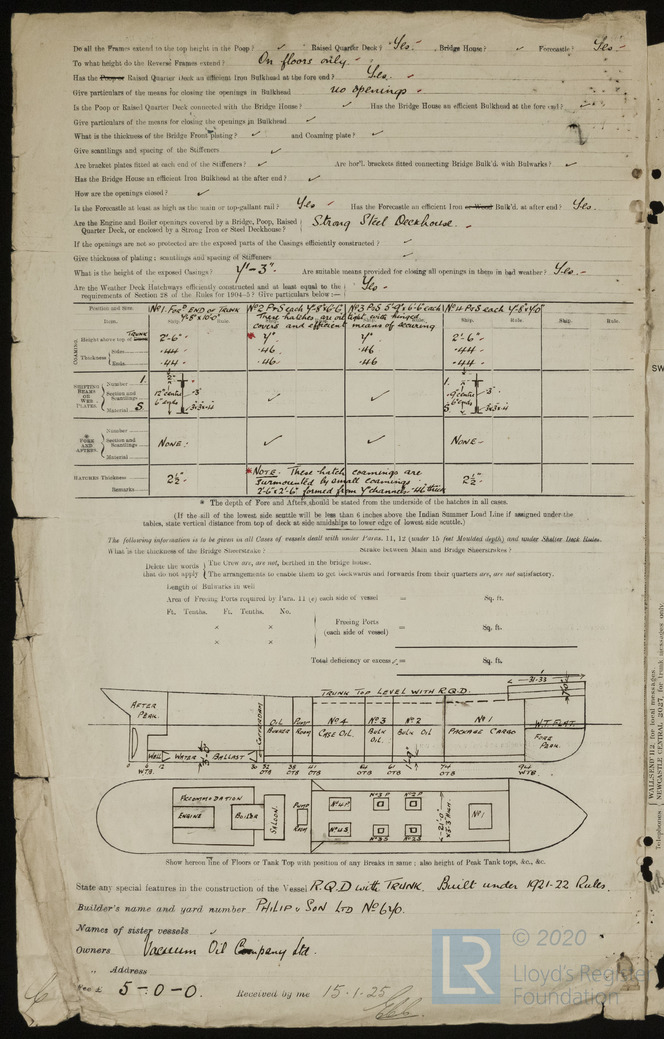 Do all the Frames extend to the top height in the Poop? ✓ Raised Quarter Deck? Yes. Bridge House? ✓ Forecastle? Yes.
To what height do the Reverse Frames extend? On floors only
Has the Poop or Raised Quarter Deck an efficient Iron Bulkhead at the fore end? Yes.
Give particulars of the means for closing the openings in Bulkhead no openings
Is the Poop or Raised Quarter Deck connected with the Bridge House? ✓ Has the Bridge House an efficient Bulkhead at the fore end? ✓
Give particulars of the means for closing the openings in Bulkhead ✓
What is the thickness of the Bridge Front plating? ✓ and Coaming plate? ✓
Give scantlings and spacing of the Stiffeners ✓
Are bracket plates fitted at each end of the Stiffeners? ✓ Are hor'l. brackets fitted connecting Bridge Bulk'd. with Bulwarks? ✓
Has the Bridge House an efficient Iron Bulkhead at the after end? ✓
How are the openings closed? ✓
Is the Forecastle at least as high as the main or top-gallant rail? Yes Has the Forecastle an efficient Iron or Wood Bulk'd. at after end? Yes.
Are the Engine and Boiler openings covered by a Bridge, Poop, Raised Quarter Deck, or enclosed by a Strong Iron or Steel Deckhouse? Strong Steel Deckhouse.
If the openings are not so protected are the exposed parts of the Casings efficiently constructed? ✓
Give thickness of plating; scantlings and spacing of Stiffeners ✓
What is the height of the exposed Casings? 4'-3". Are suitable means provided for closing all openings in them in bad weather? Yes.
Are the Weather Deck Hatchways efficiently constructed and at least equal to the requirements of Section 28 of the Rules for 1904-5? Give particulars below:— Yes
Position and Size. Nº1. For'd END OF TRUNK Nº2 P&S each Nº3 P&S Nº4 P&S each
Item. Ship. Rule. These hatches are oil tight with hinged Ship. Rule. Ship. Rule.
covers and efficient means of securing
COAMING Height above top of TRUNK 2'-6" 2'-6"
Thickness Sides .44 .46 .46 .44
Ends .44 .46 .46 .44
SHIFTING BEAMS OR WEB PLATES. Number 1 ✓ ✓ 1
Section and Scantlings
Material S S
FORE AND AFTERS. Number
Section and Scantlings NONE ✓ ✓ NONE
Material
HATCHES Thickness 2½" 2½"
Remarks * NOTE. These hatch coamings are
surmounted by small coamings
2'-6"x2'-6" formed from
* The depth of Fore and Afters should be stated from the underside of the hatches in all cases.
(If the sill of the lowest side scuttle will be less than 6 inches above the Indian Summer Load Line if assigned under the
tables, state vertical distance from top of deck at side amidships to lower edge of lowest side scuttle.)
The following information is to be given in all Cases of vessels dealt with under Paras. 11, 12 (under 15 feet Moulded depth) and under Shelter Deck Rules.
What is the thickness of the Bridge Sheerstrake? Stroke between Main and Bridge Sheerstrakes?
Delete the words that do not apply { The Crew are, are not, berthed in the bridge house.
The arrangements to enable them to get backwards and forwards from their quarters are, are not satisfactory.
Length of Bulwarks in well
Area of Freeing Ports required by Para. 11 (e) each side of vessel = Sq. ft.
Ft. Tenths. Ft. Tenths. No.
× × Freeing Ports (each side of vessel) = Sq. ft.
× ×
Total deficiency or excess = Sq. ft.
31.33
TRUNK TOP LEVEL WITH R.Q.D.
AFTER PEAK COFFERDAM OIL BUNKER PUMP ROOM Nº4 CASE OIL. Nº3 BULK OIL. Nº2 BULK OIL Nº1 PACKAGE CARGO W.T. FLAT FORE PEAK.
WELL WATER BALLAST
ACCOMMODATION
ENGINE BOILER SALOON. PUMP ROOM Nº4P Nº3P Nº2P Nº1
Nº4S Nº3S Nº2S
Show hereon line of Floors or Tank Top with position of any Breaks in same; also height of Peak Tank tops, &c., &c.
State any special features in the construction of the Vessel R.Q.D with TRUNK. Built under 1921-22 Rules.
Builder's name and yard number PHILIP & SON LTD Nº 640.
Names of sister vessels
Owners Vacuum Oil Company Ltd.
,, Address
Fee £ 5-0-0. Received by me 15.1.25
LR © 2020
Lloyd's Register
Foundation
Telephones: WALLSEND 112, for local messages.
NEWCASTLE CENTRAL 2027, for trunk messages only.
SW